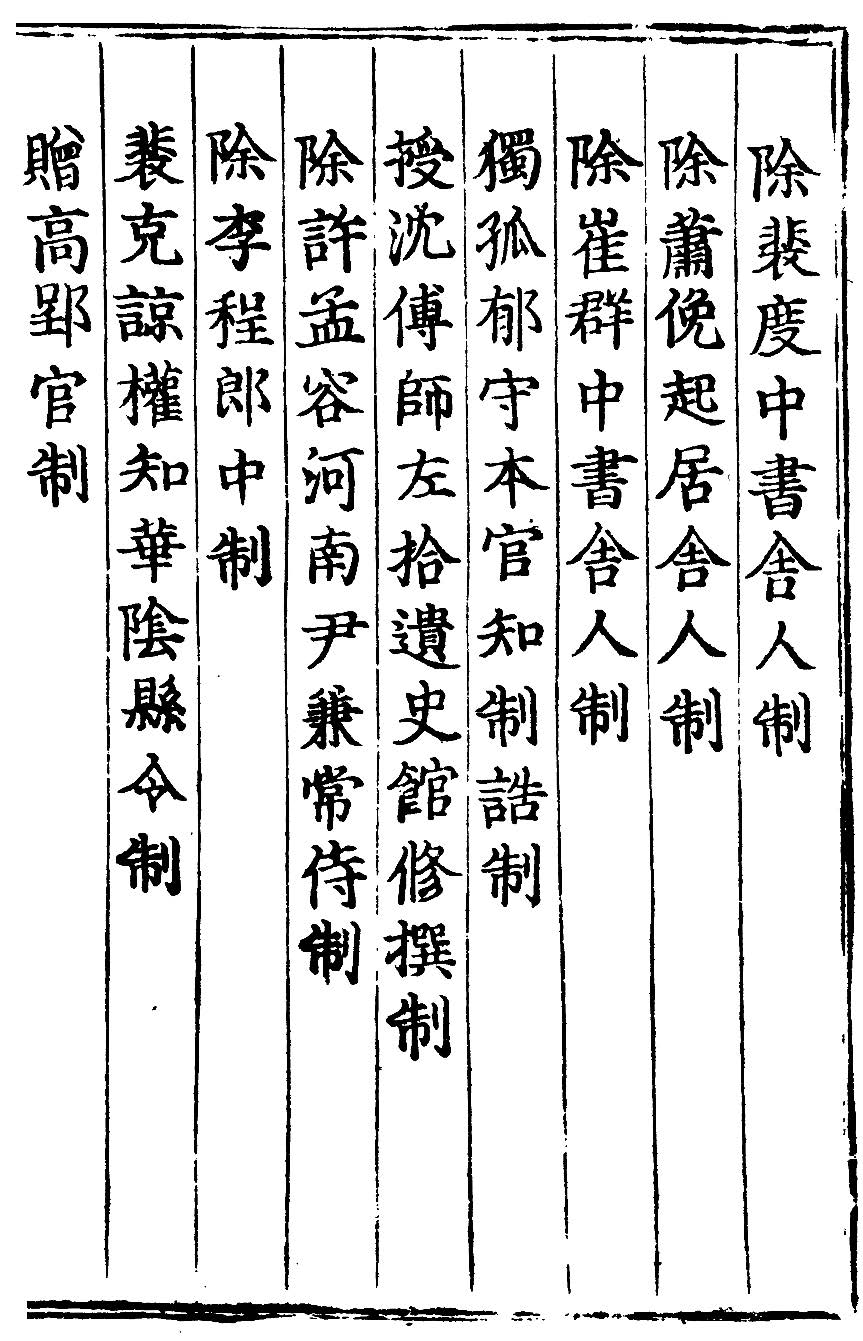 除裴度中書舍人制
除蕭俛起居舍人制
除崔群中書舍人制
獨孤郁守本官知制誥制
授沈傅師左拾遺史館修撰制
除許孟容河南尹兼常侍制
除李程郎中制
裴克諒權知華陰縣令制
贈高郢官制